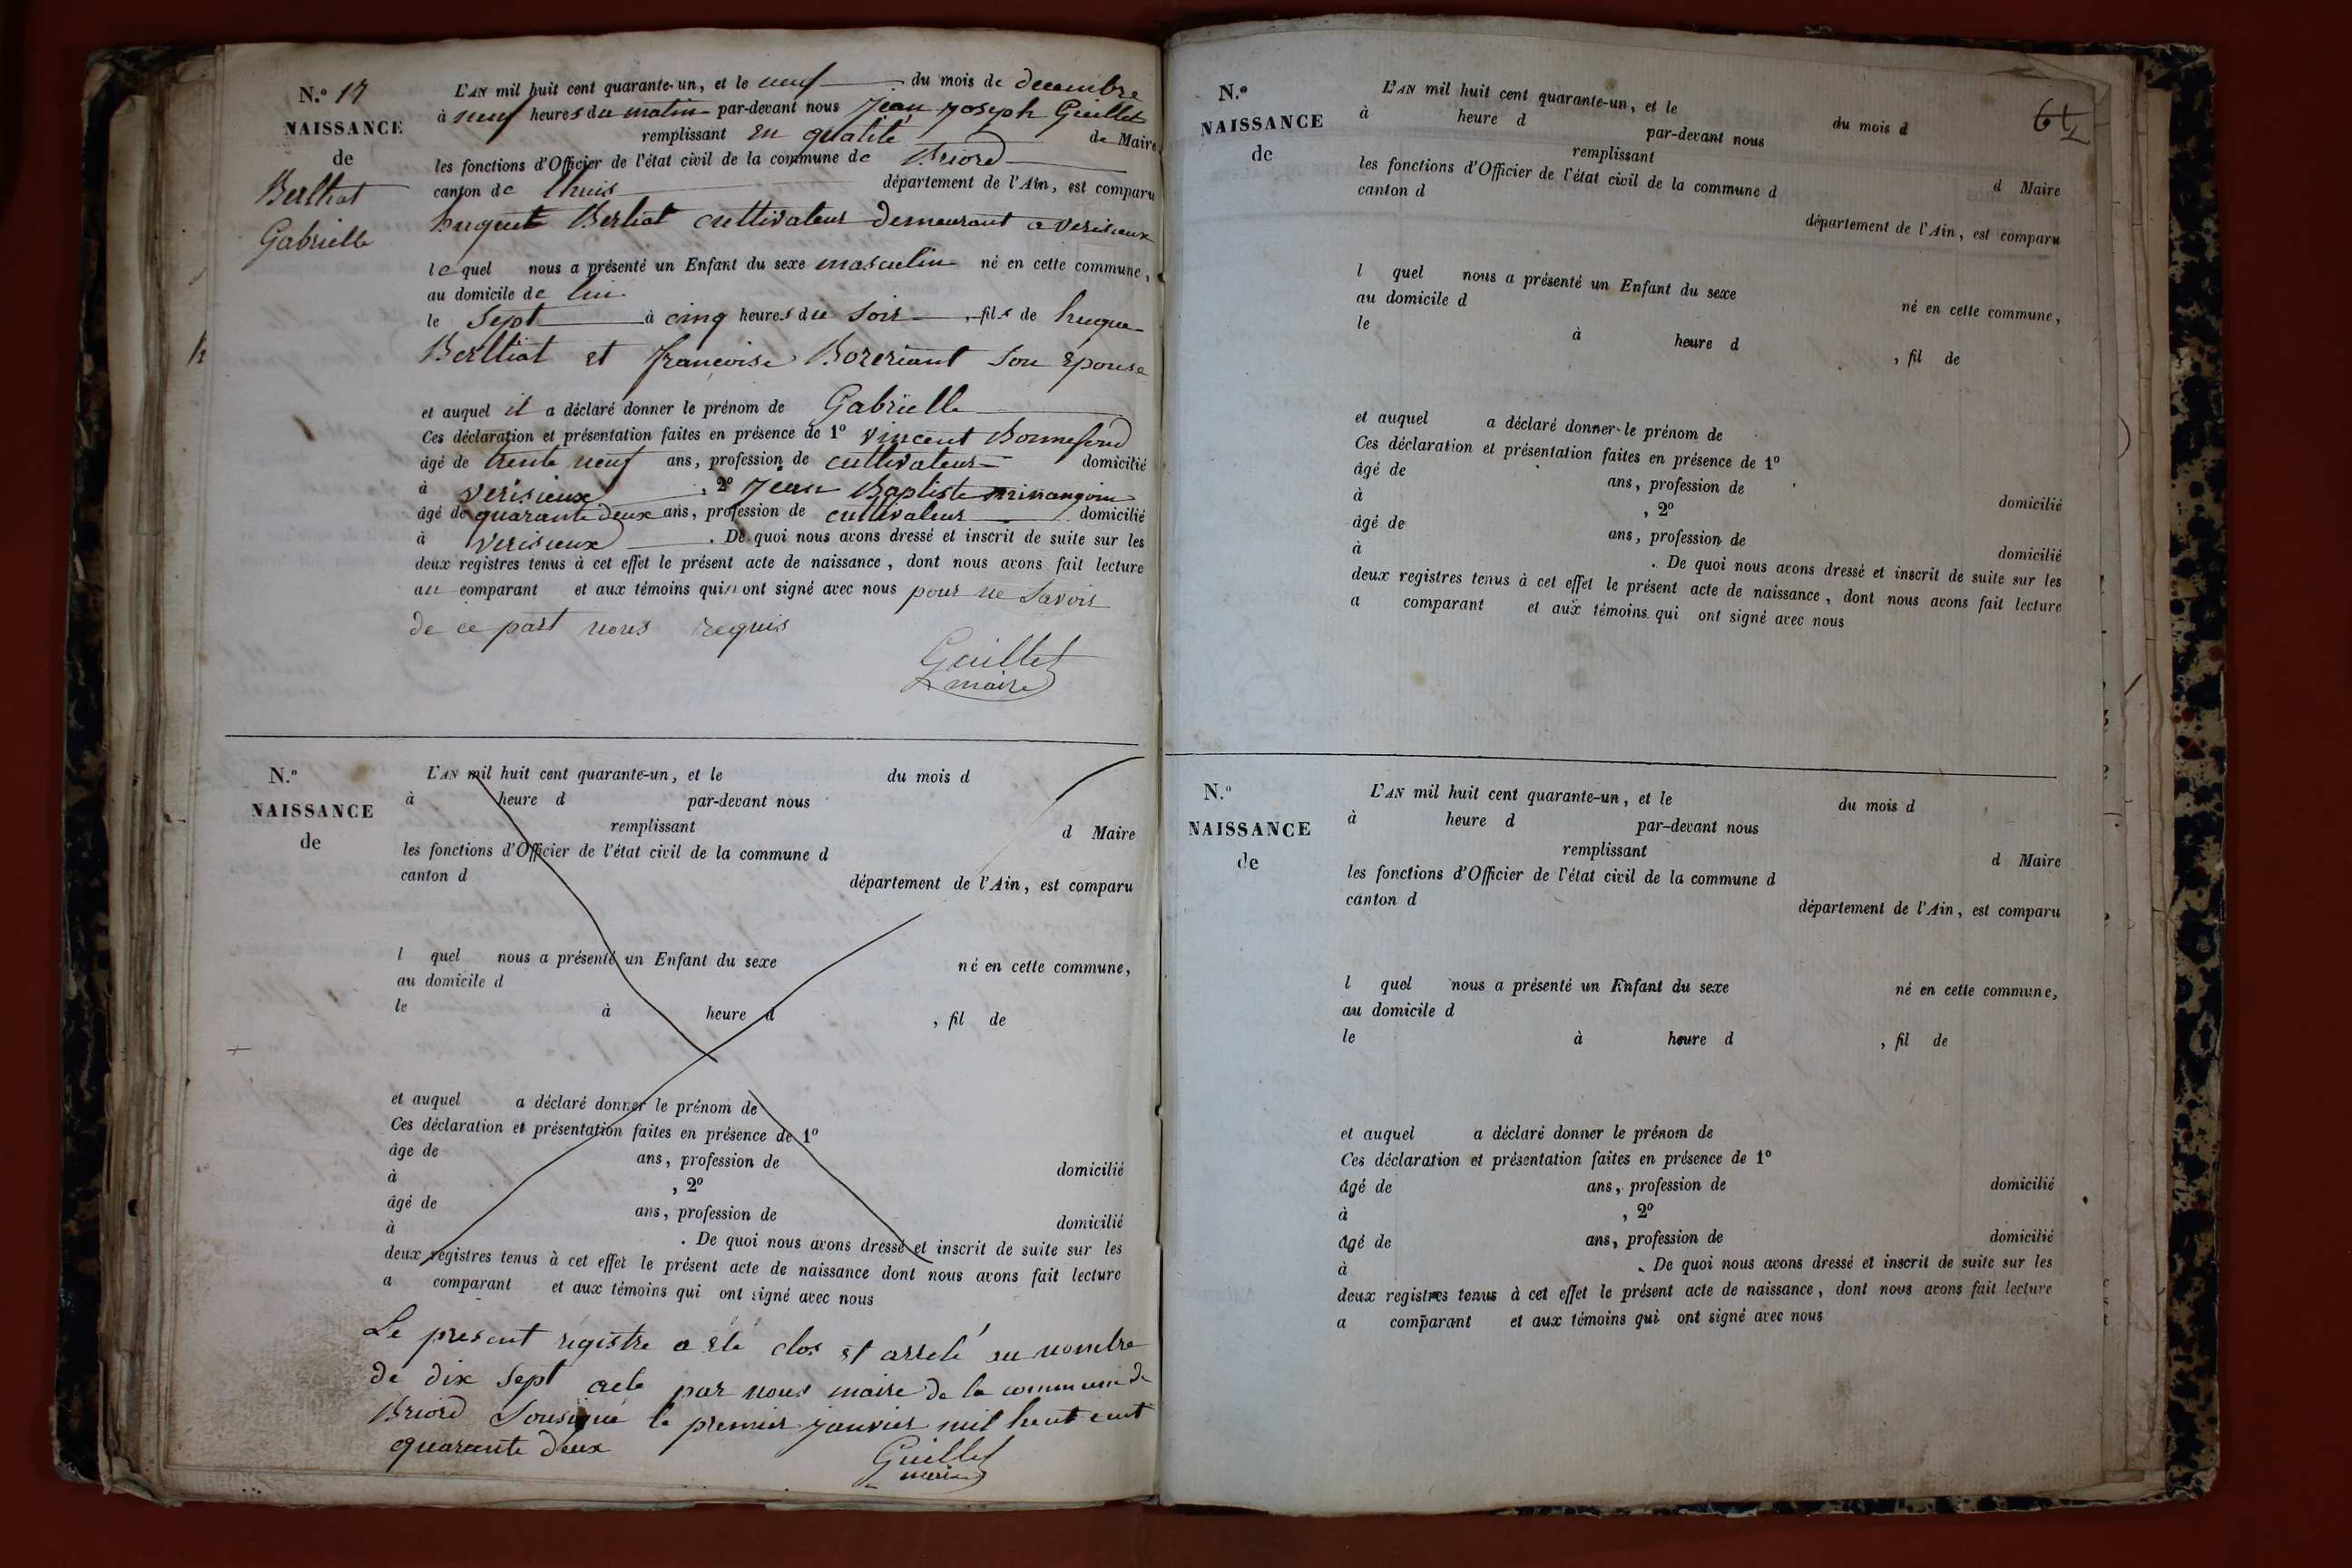 N.º 17
NAISSANCE
de
Berthat
Gabrielle
L'AN mil huit cent quarante-un, et le neuf du mois de decembre
à neuf heures du matin par-devant nous Jean Joseph Guillet
remplissant en qualité de Maire
les fonctions d'Officier de l'état civil de la commune de Briord
canton de lhuis département de l'Ain, est comparu
huguet Berliat cultivateur demeurant a verisieux
le quel nous a présenté un Enfant du sexe masculin né en cette commune,
au domicile de lui
le Sept à cinq heures du soir, fils de hugue
Berthiat et francoise Boreriant son epouse
et auquel il a déclaré donner le prénom de Gabrielle
Ces déclaration et présentation faites en présence de 1º vincent Bonnefond
âgé de trente neuf ans, profession de cultivateur domicilié
à verisieux, 2º Jean Baptiste
âgé de quarante deux ans, profession de cultivateur domicilié
à verisieux. De quoi nous avons dressé et inscrit de suite sur les
deux registres tenus à cet effet le présent acte de naissance, dont nous avons fait lecture
au comparant et aux témoins qui n ont signé avec nous pour ne savoir
de ce part nous requis
Guillet
maire
N.º
NAISSANCE
de
L'AN mil huit cent quarante-un, et le du mois d
à heure d par-devant nous
remplissant d Maire
les fonctions d'Officier de l'état civil de la commune d
canton d département de l'Ain, est comparu
l quel nous a présenté un Enfant du sexe né en cette commune,
au domicile d
le à heure d , fil de
et auquel a déclaré donner le prénom de
Ces déclaration et présentation faites en présence de 1º
âge de ans, profession de domicilié
à , 2º
âgé de ans, profession de domicilié
à . De quoi nous avons dressé et inscrit de suite sur les
deux registres tenus à cet effet le présent acte de naissance dont nous avons fait lecture
a comparant et aux témoins qui ont signé avec nous
Le present registre a été clos et arrelé au nombre
de dix sept acte par nous maire de la commune de
Briord Sousigné le premier janvier mil huit cent
quarante deux
Guillet
maire
N.º
NAISSANCE
de
L'AN mil huit cent quarante-un, et le du mois d
à heure d par-devant nous
remplissant d Maire
les fonctions d'Officier de l'état civil de la commune d
canton d département de l'Ain, est comparu
l quel nous a présenté un Enfant du sexe né en cette commune,
au domicile d
le à heure d , fil de
et auquel a déclaré donner le prénom de
Ces déclaration et présentation faites en présence de 1º
âgé de ans, profession de domicilié
à , 2º
âgé de ans, profession de domicilié
à . De quoi nous avons dressé et inscrit de suite sur les
deux registres tenus à cet effet le présent acte de naissance, dont nous avons fait lecture
a comparant et aux témoins qui ont signé avec nous
N.º
NAISSANCE
de
L'AN mil huit cent quarante-un, et le du mois d
à heure d par-devant nous
remplissant d Maire
les fonctions d'Officier de l'état civil de la commune d
canton d département de l'Ain, est comparu
l quel nous a présenté un Enfant du sexe né en cette commune,
au domicile d
le à heure d , fil de
et auquel a déclaré donner le prénom de
Ces déclaration et présentation faites en présence de 1º
âgé de ans, profession de domicilié
à , 2º
âgé de ans, profession de domicilié
à . De quoi nous avons dressé et inscrit de suite sur les
deux registres tenus à cet effet le présent acte de naissance, dont nous avons fait lecture
a comparant et aux témoins qui ont signé avec nous